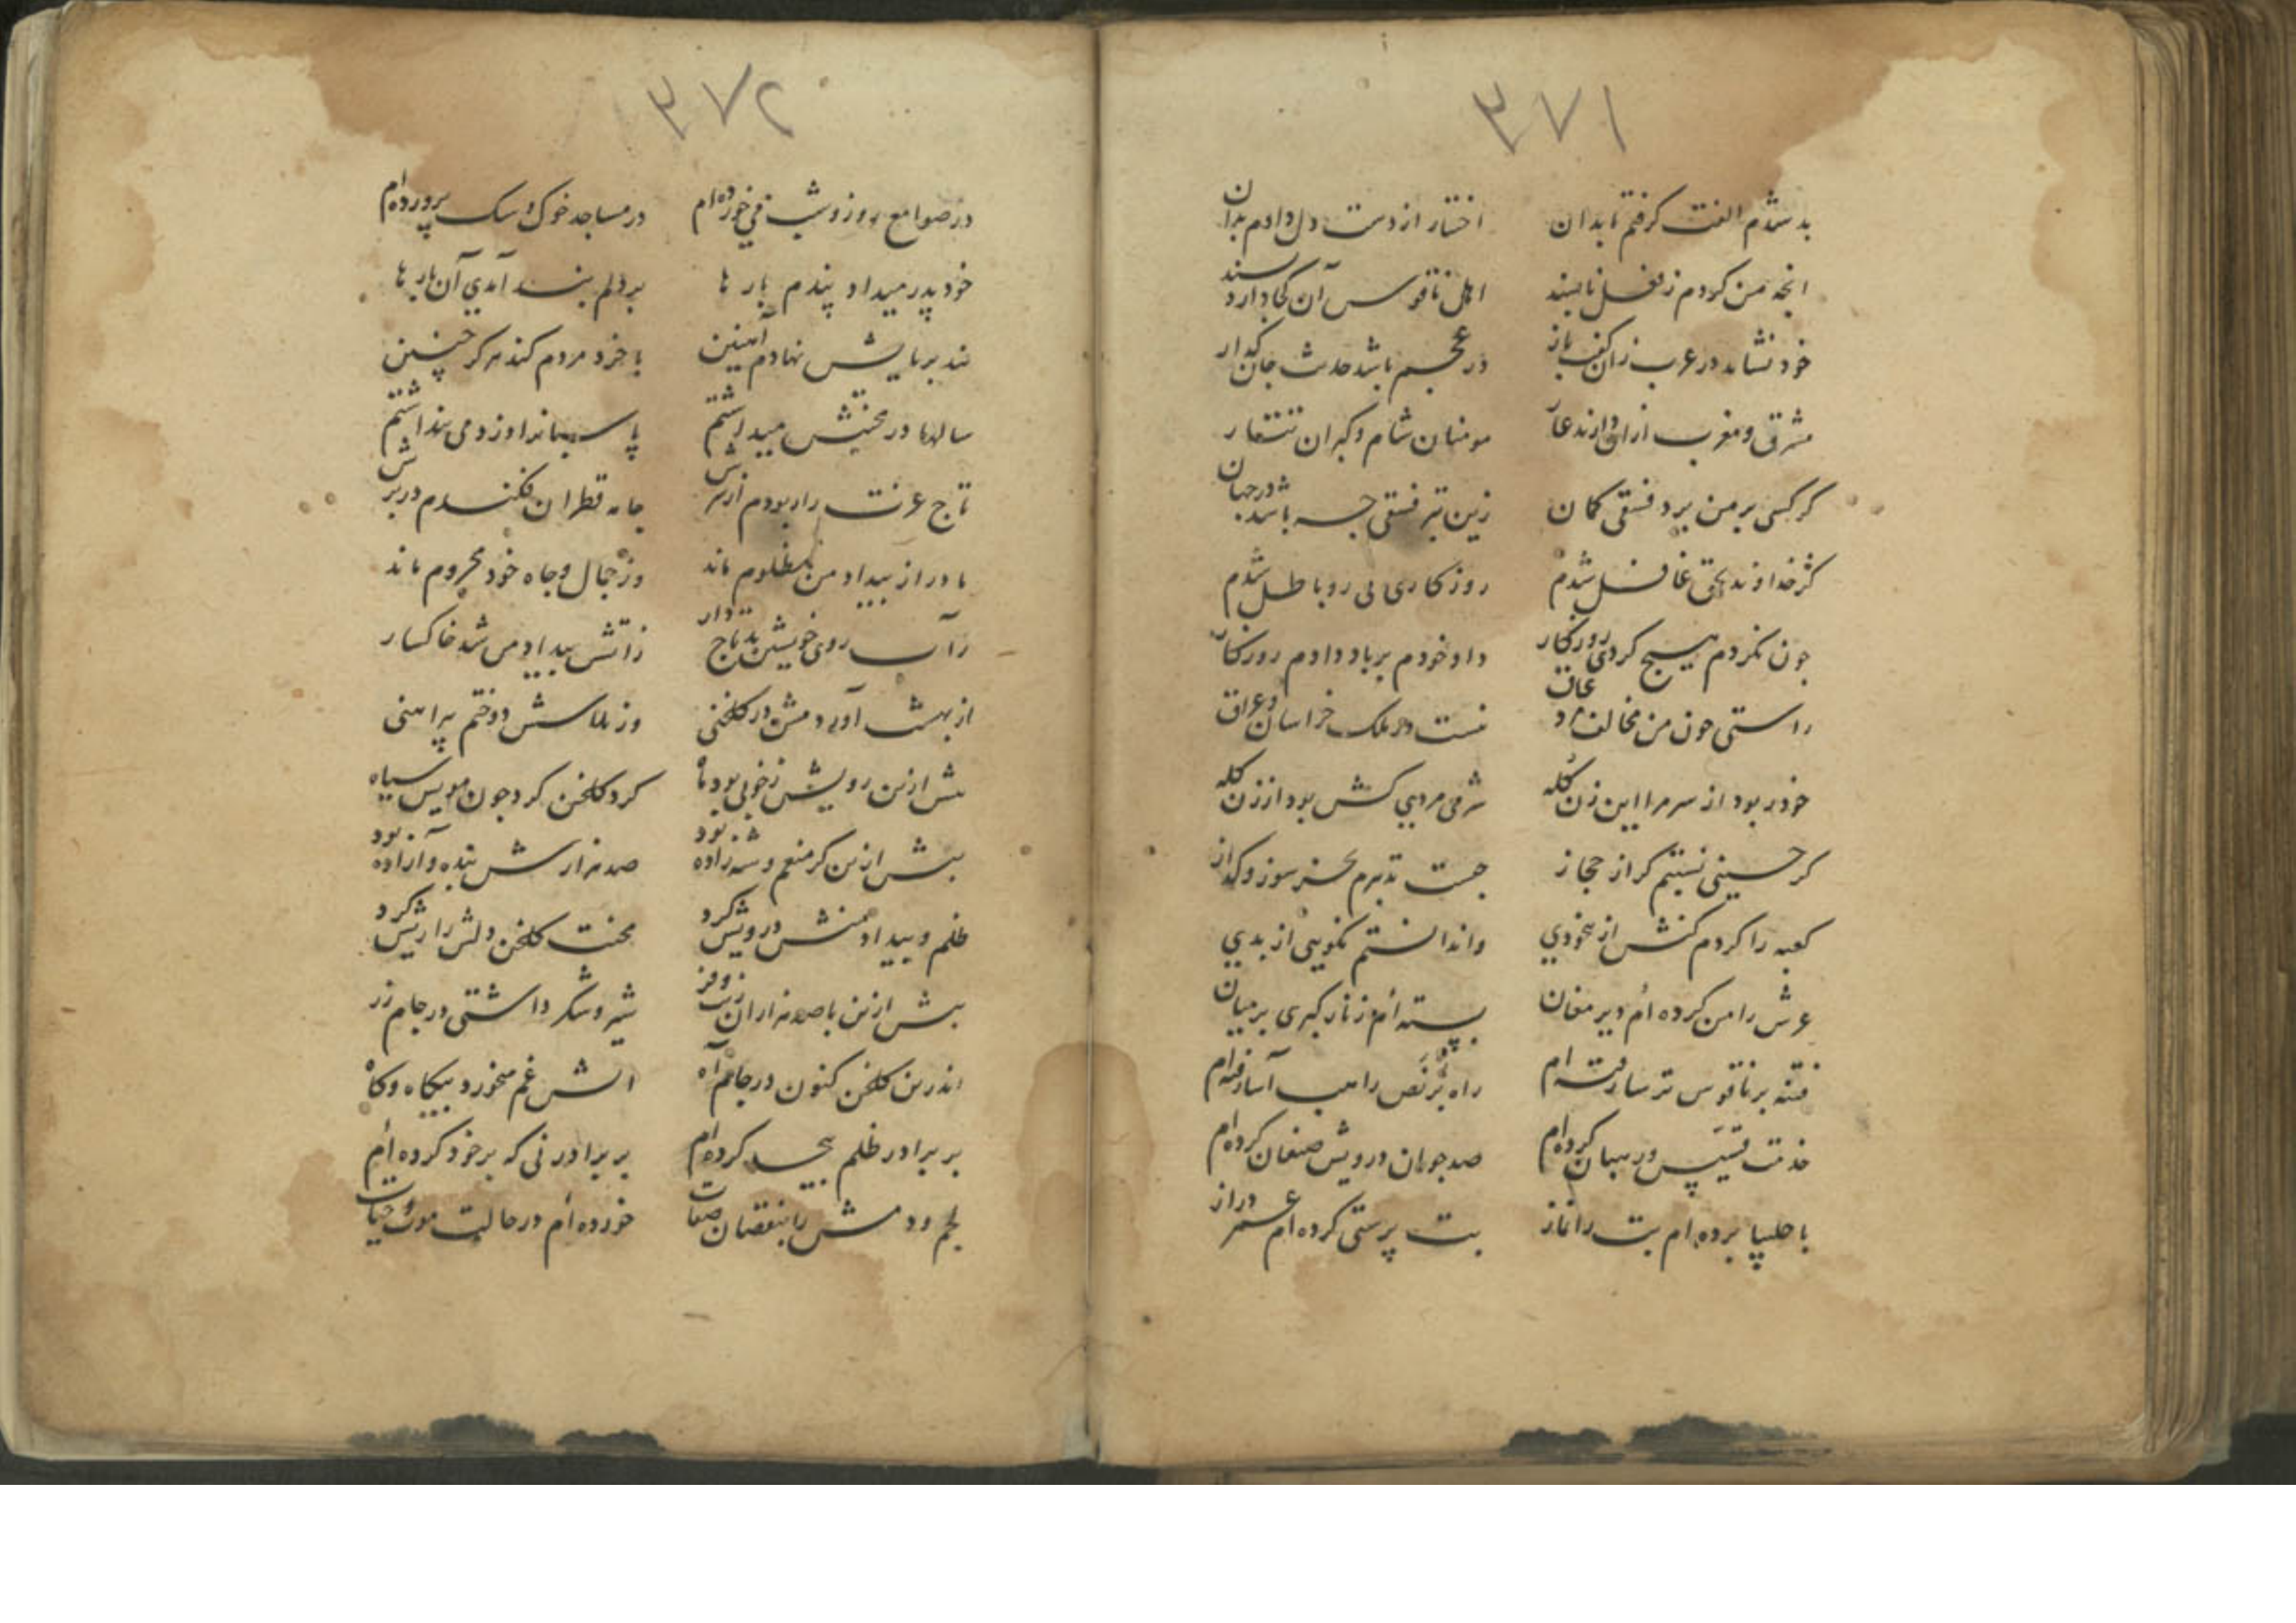 ۳۷۱
بد شدم الفت گرفتم تا بدان اختیار از دست دل دادم بدان
انچه من کردم ز فعل ناپسند اهل ناقوس آن کجا دارد پسند
خود نشاید در عرب زان گفت باز در عجم باشد حدیث جان گداز
مشرق و مغرب ازان دارند عار مومنان شام و کبران تتار
گر کسی بر من برد فسقی گمان زین بتر فسقی چه باشد در جهان
کز خداوند بحق غافل شدم روزگاری بی رو باطل شدم
چون نکردم هیچ کردی روزگار داد خودم بر باد دادم روزگار
راستی چون من مخالف مرد عاق نیست در ملک خراسان و عراق
خود ربود از سر مرا این زن کله شرم مردی کش بود از زن کله
گر حسینی نسبتم گر از حجاز چیست تدبیرم بجز سوز و گداز
کعبه را کردم کنش از بیخودی واندانستم نکویی از بدی
عرش را من کرده ام دیر مغان بسته ام زنار کبری بر میان
فتنه بر ناقوس ترسا رفته ام راه برنص راهب آسا رفته ام
خدمت قسیس و رهبان کرده ام صد جوان درویش صنعان کرده ام
با چلیپا برده ام بت را نماز بت پرستی کرده ام عمر دراز
۳۷۲
در صوامع روز و شب می خورده ام در مساجد خوک و سگ پرورده ام
خود پدر میداد پندم بارها بر دلم بند آمدی آن بارها
بند بر پایش نهادم آهنین با خرد مردم کند هرگز چنین
سالها در محنتش میداشتم پاسبانرا دزد می پنداشتم
تاج عزت را ربودم از سرش جامه قطران فکندم در برش
مادر از بیداد من مظلوم ماند وز جمال و جاه خود محروم ماند
زآب روی خویش بد تاج دار زاتش بیداد من شد خاکسار
از بهشت آوردمش در گلخنی وز پلاسش دوختم پیراهنی
پیش ازین رویش ز خوبی بود ماه گرد گلخن کرد چون مویش سیاه
پیش ازین گر منعم و شه زاده بود صد هزارش بنده و آزاده بود
ظلم و بیداد منش درویش کرد محنت گلخن دلش را ریش کرد
پیش ازین با صد هزاران زیب و فر شیر و شکر داشتی در جام زر
اندرین گلخن کنون در جام آه اتش غم میخورد بیگاه و گاه
بر برادر ظلم بیحد کرده ام بر برادر نی که بر خود کرده ام
لحم و دمش را بنقصان صفات خورده ام در حالت موت و حیات